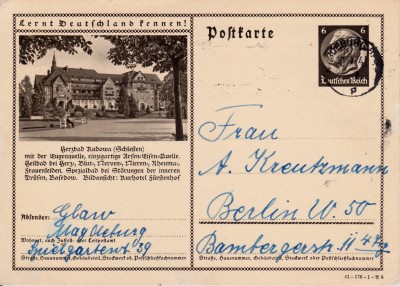 Lernt Deutschland kennen!
Postkarte
6 6
Deutsches Reich
MAGDEBURG
p
Herzbad Kudowa (Schlesien)
mit der Eugenquelle, einzigartige Arsen-Eisen-Quelle.
Heilbad bei Herz-, Blut-, Nerven-, Nieren-, Rheuma-,
Frauenleiden. Spezialbad bei Störungen der inneren
Drüsen, Basedow. Bildansicht: Kurhotel Fürstenhof
Absender: Glaw
Magdeburg
Wohnort, auch Zustell- oder Leitpostamt
39
Straße, Hausnummer, Gebäudeteil, Stockwerk od. Postschließfachnummer
Frau
A. Kreutzmann
Berlin W. 50
Bambergerstr.
Straße, Hausnummer, Gebäudeteil, Stockwerk oder Postschließfachnummer
41-178-1-B 6